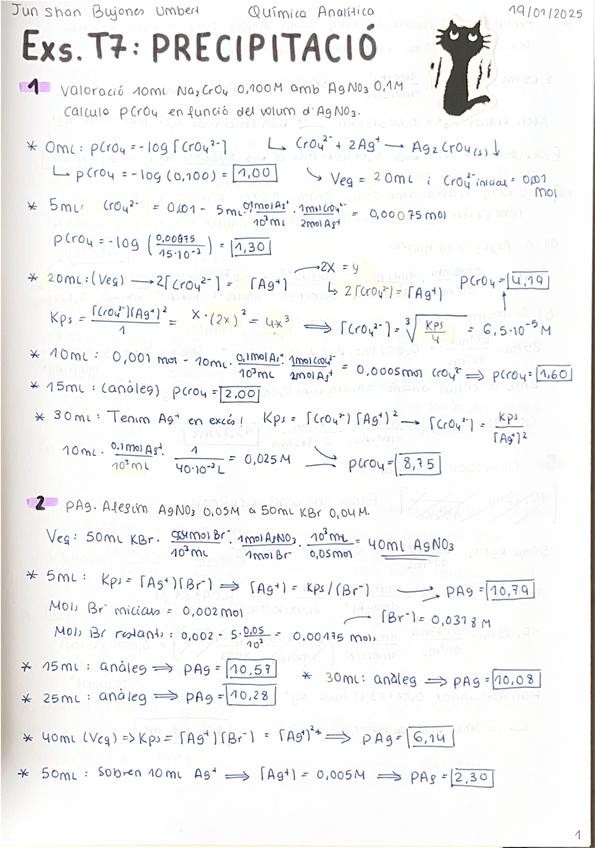 Jun Shan Bujones Umbert Química Analítica 19/01/2025
Exs. T7: PRECIPITACIÓ
1 Valoració 10ml Na₂CrO₄ 0,100M amb AgNO₃ 0,1M
Calcula pCrO₄ en funció del volum d'AgNO₃.
* 0ml: pCrO₄ = -log [CrO₄²⁻] ↳ CrO₄²⁻ + 2Ag⁺ → Ag₂CrO₄(s)↓
↳ pCrO₄ = -log (0,100) = 1,00 ↘ Veq = 20ml i CrO₄²⁻ inicial = 0,01 mol
* 5ml: CrO₄²⁻ = 0,01 - 5ml · 0,1mol Ag⁺/10³ml · 1mol CrO₄²⁻/2mol Ag⁺ = 0,00075mol
pCrO₄ = -log (0,00075/15·10⁻³) = 1,30
* 20ml: (Veq) → 2[CrO₄²⁻] = [Ag⁺] → 2x = y
↳ 2[CrO₄²⁻] = [Ag⁺] pCrO₄ = 4,19
Kps = [CrO₄²⁻][Ag⁺]²/1 = x · (2x)² = 4x³ ⟹ [CrO₄²⁻] = ³√(Kps/4) = 6,5·10⁻⁵ M
* 10ml: 0,001 mol - 10ml · 0,1mol Ag⁺/10³mL · 1mol CrO₄²⁻/2mol Ag⁺ = 0,0005mol CrO₄²⁻ ⟹ pCrO₄ = 1,60
* 15ml: (anàleg) pCrO₄ = 2,00
* 30ml: Tenim Ag⁺ en excés! Kps = [CrO₄²⁻][Ag⁺]² → [CrO₄²⁻] = Kps/[Ag⁺]²
10ml · 0,1mol Ag⁺/10³mL · 1/40·10⁻³L = 0,025M → pCrO₄ = 8,75
2 pAg. Afegim AgNO₃ 0,05M a 50ml KBr 0,04M.
Veq: 50ml KBr · 0,04mol Br⁻/10³mL · 1mol AgNO₃/1mol Br⁻ · 10³mL/0,05mol = 40ml AgNO₃
* 5ml: Kps = [Ag⁺][Br⁻] ⟹ [Ag⁺] = Kps/[Br⁻] → pAg = 10,79
Mols Br⁻ inicials = 0,002mol [Br⁻] = 0,0318M
Mols Br restants: 0,002 - 5·0,05/10³ = 0,00175 mols
* 15ml: anàleg ⟹ pAg = 10,57 * 30ml: anàleg ⟹ pAg = 10,08
* 25ml: anàleg ⟹ pAg = 10,28
* 40ml (Veq) => Kps = [Ag⁺][Br⁻] = [Ag⁺]²⁺ ⟹ pAg = 6,14
* 50ml: Sobren 10ml Ag⁺ ⟹ [Ag⁺] = 0,005M ⟹ pAg = 2,30
1